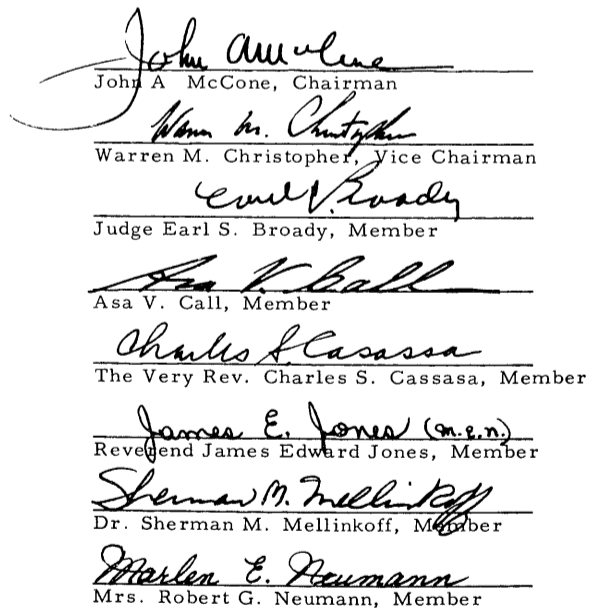 John A McCone
John A McCone, Chairman
Warren M. Christopher
Warren M. Christopher, Vice Chairman
Earl S. Broady
Judge Earl S. Broady, Member
Asa V. Call
Asa V. Call, Member
Charles S. Casassa
The Very Rev. Charles S. Cassasa, Member
James E. Jones (M.E.N.)
Reverend James Edward Jones, Member
Sherman M. Mellinkoff
Dr. Sherman M. Mellinkoff, Member
Marlen E. Neumann
Mrs. Robert G. Neumann, Member